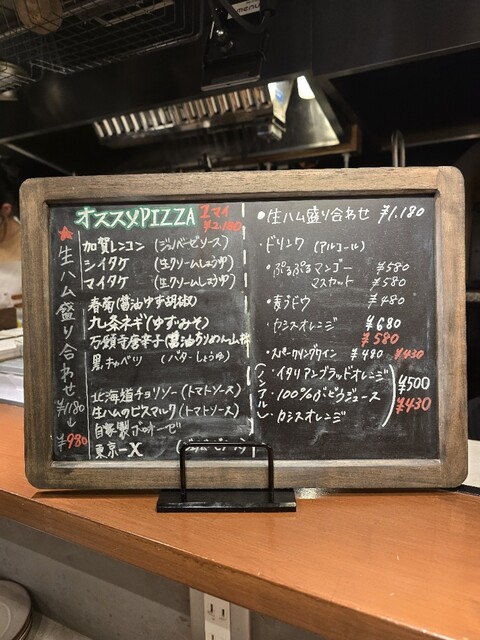 オススメPIZZA 1マイ
¥2,180
★生ハム盛り合わせ ¥1,180
→
¥980
加賀レンコン (ジェノベーゼソース)
シイタケ (生クリームしょうゆ)
マイタケ (生クリームしょうゆ)
春菊(醤油ゆず胡椒)
九条ネギ(ゆずみそ)
万願寺唐辛子(醤油
黒キャベツ (バターしょうゆ)
北海道チョリソー(トマトソース)
生ハムのビスマルク(トマトソース)
自家製
東京-X
•生ハム盛り合わせ ¥1,180
・ドリンク (アルコール)
・ぷるぷるマンゴー ¥580
マスカット ¥580
・麦ブドウ ¥480
・カシスオレンジ ¥680
¥580
・スパークリングワイン ¥480 ¥430
ノンアル
・イタリアンブラッドオレンジ
・100%ぶどうジュース
・カシスオレンジ
¥500
¥430
menu